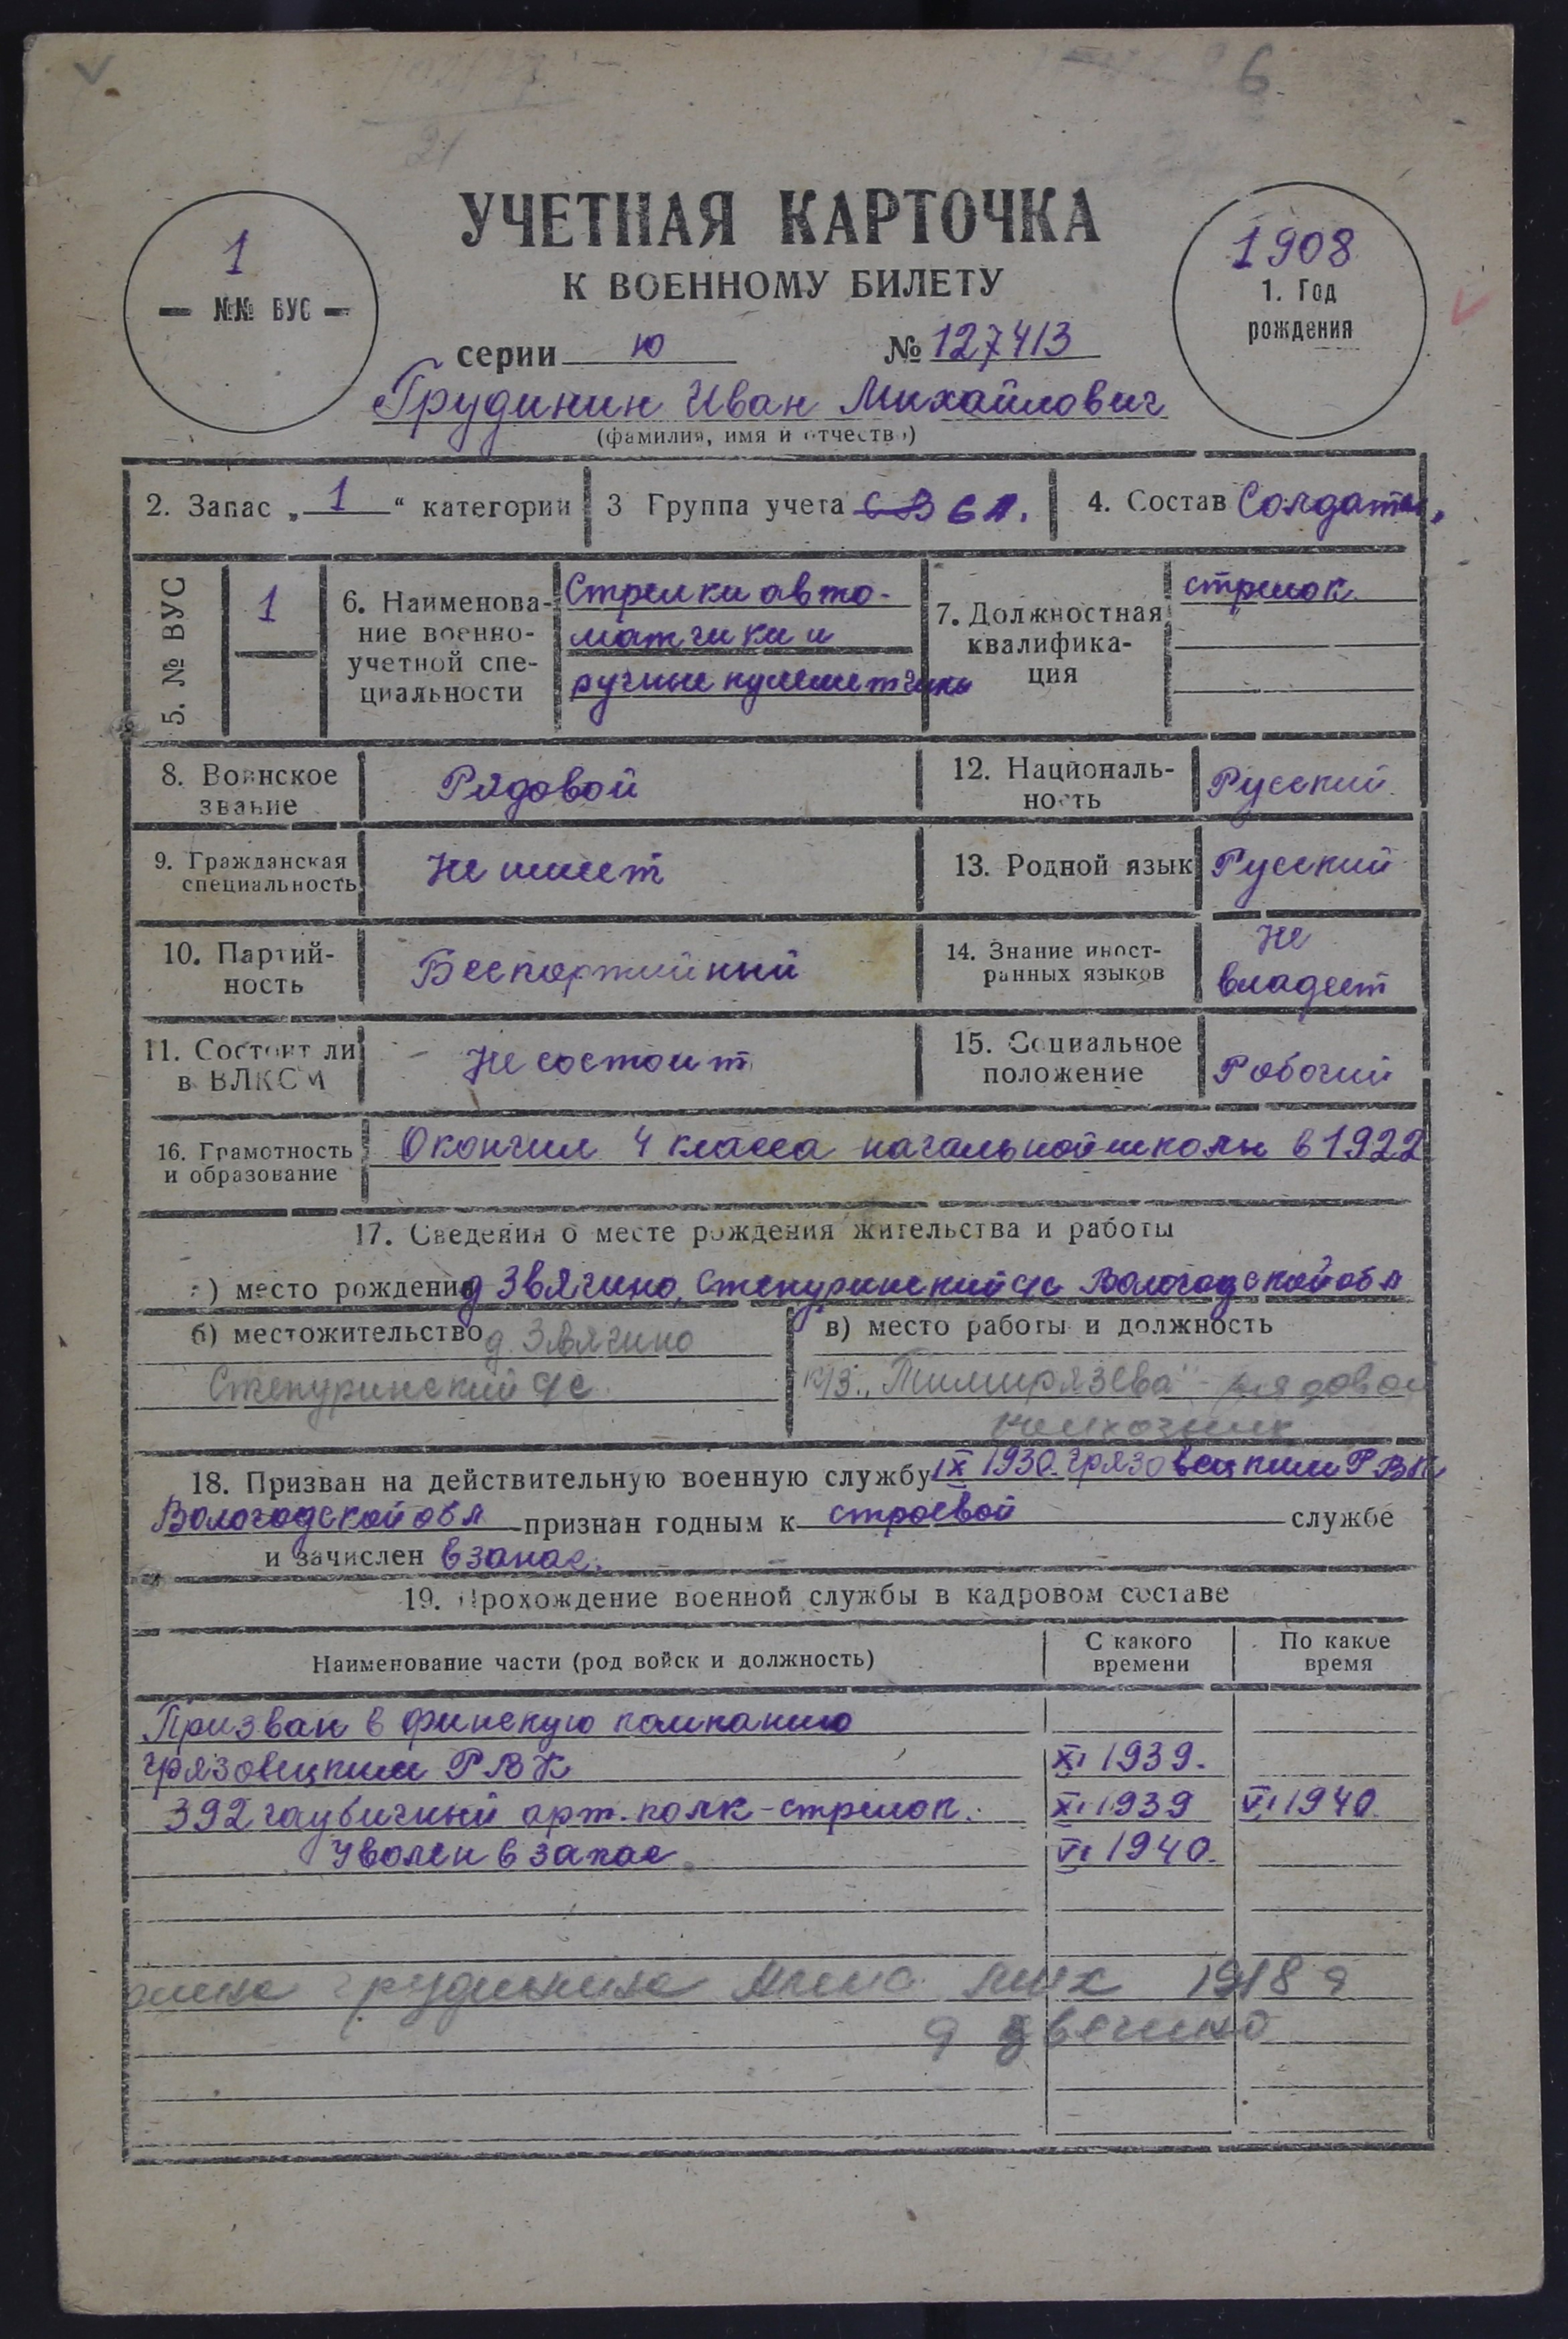 6
21
УЧЕТНАЯ КАРТОЧКА
К ВОЕННОМУ БИЛЕТУ
1
№№ ВУС
1908
1. Год
рождения
серии ю № 127413
Грудинин Иван Михайлович
(фамилия, имя и отчество)
2. Запас „ 1 “ категории 3 Группа учета СВ СА. 4. Состав Солдаты
5. № ВУС 1
6. Наименова-
ние военно-
учетной спе-
циальности
Стрелки авто-
матчики и
ручные пулеметчики
7. Должностная
квалифика-
ция
стрелок
8. Воинское
звание
Рядовой
12. Националь-
ность
Русский
9. Гражданская
специальность
Не имеет
13. Родной язык Русский
10. Партий-
ность
Беспартийный
14. Знание иност-
ранных языков
Не
владеет
11. Состоит ли
в ВЛКСМ
Не состоит
15. Социальное
положение
Рабочий
16. Грамотность
и образование
Окончил 4 класса начальной школы в 1922
17. Сведения о месте рождения жительства и работы
а) место рождения д Звягино, Степуринский с/с Вологодской обл
б) местожительство д. Звягино
Степуринский с/с
в) место работы и должность
к/з „Тимирязева" - рядовой
18. Призван на действительную военную службу IX 1930 Грязовецким РВК
Вологодской обл признан годным к строевой службе
и зачислен в запас.
19. Прохождение военной службы в кадровом составе
Наименование части (род войск и должность) С какого
времени По какое
время
Призван в финскую компанию
Грязовецким РВК XI 1939.
392 гаубичный арт. полк - стрелок. XI 1939 VI 1940.
Уволен в запас VI 1940.
жена Грудинина Анна Мих 1918 г
д Звягино